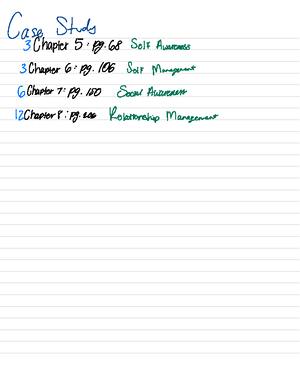 Case Study
3 Chapter 5: pg. 68 Self Awareness
3 Chapter 6: pg. 106 Self Management
6 Chapter 7: pg. 150 Social Awareness
12 Chapter 8: pg. Relationship Management